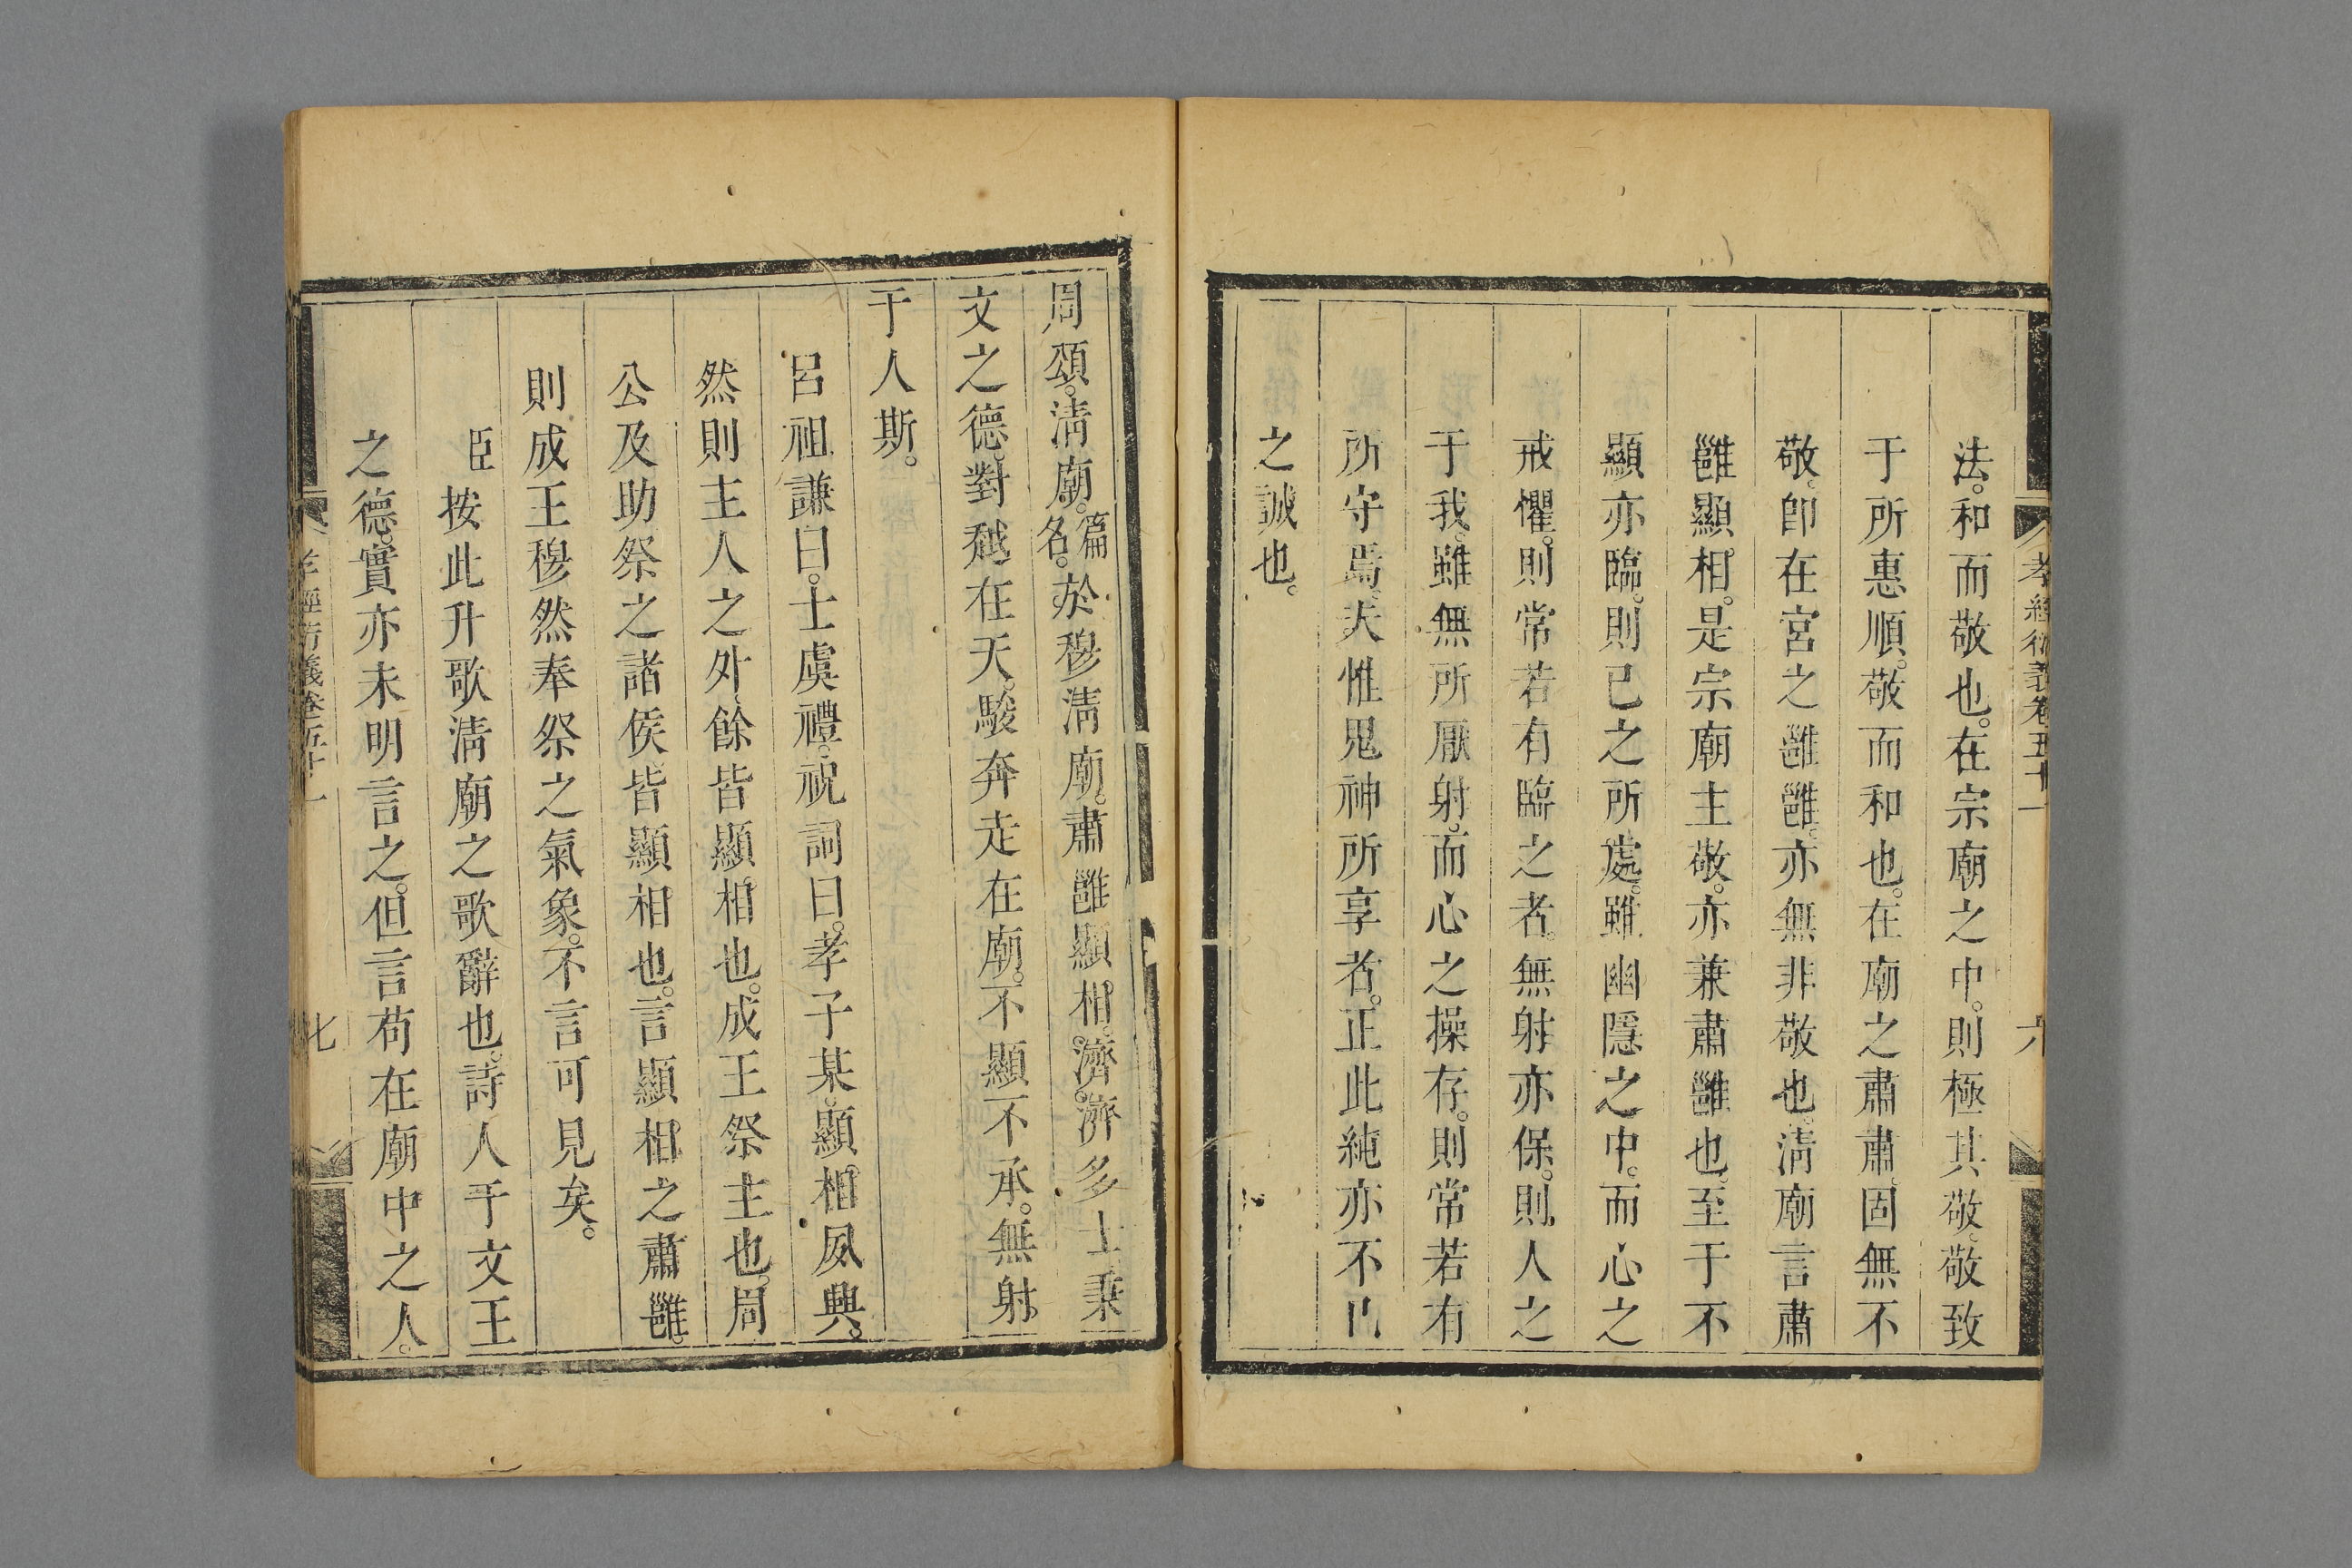 孝經衍義卷五十一 六
法。和而敬也。在宗廟之中。則極其敬。敬致
于所惠順。敬而和也。在廟之肅肅。固無不
敬。卽在宮之雝雝。亦無非敬也。淸廟言肅
雝顯相。是宗廟主敬。亦兼肅雝也。至于不
顯亦臨。則已之所處。雖幽隱之中。而心之
戒懼。則常若有臨之者。無射亦保。則人之
于我。雖無所厭射。而心之操存。則常若有
所守焉。夫惟鬼神所享者。正此純亦不已
之誠也。
周頌。淸廟。篇名。於穆淸廟。肅雝顯相。濟濟多士。秉
文之德。對越在天。駿奔走在廟。不顯不承。無射
于人斯。
呂祖謙曰。士虞禮。祝詞曰。孝子某。顯相夙興。
然則主人之外。餘皆顯相也。成王祭主也。周
公及助祭之諸侯。皆顯相也。言顯相之肅雝。
則成王穆然奉祭之氣象。不言可見矣。
臣按此升歌淸廟之歌辭也。詩人于文王
之德。實亦未明言之。但言苟在廟中之人。
孝經衍義卷五十一 七